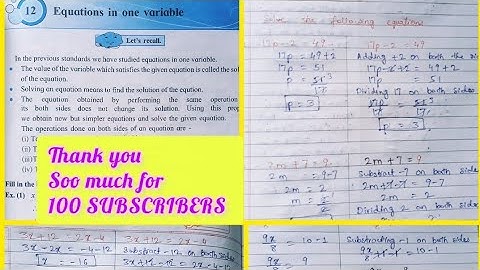 12 Equations in one variable
Let's recall.
In the previous standards we have studied equations in one variable.
The value of the variable which satisfies the given equation is called the sol
of the equation.
Solving an equation means to find the solution of the equation.
The equation obtained by performing the same operation
its both sides does not change its solution. Using this prop
we obtain new but simpler equations and solve the given equation.
The operations done on both sides of an equation are -
(i) T
(ii)
(iii) T
(iv) T
Thank you
Soo much for
100 SUBSCRIBERS
Fill in the
Ex. (1)
3x+12 = 2x-4
3x-2x = -4-12
x = -16
3x+12 = 2x-4
Substract -12 on both sides
3x+12-12 = 2x-4
Solve the following equations
17p-2 = 49
17p = 49+2
17p = 51
p = 51
17
p = 3
17p-2 = 49
Adding +2 on both the si
17p-2+2 = 49+2
17p = 51
Dividing 17 on both sides
17p = 51
17
p = 3
2m+7 = 9
2m = 9-7
2m = 2
m = 2
2m+7 = 9
Substract -7 on both s
2m+7-7 = 9-7
2m = 2
Dividing 2 on both
9x = 10-1
8
9x = 9
8
Substracting -1 on both
9x +1-1 = 10-1
8